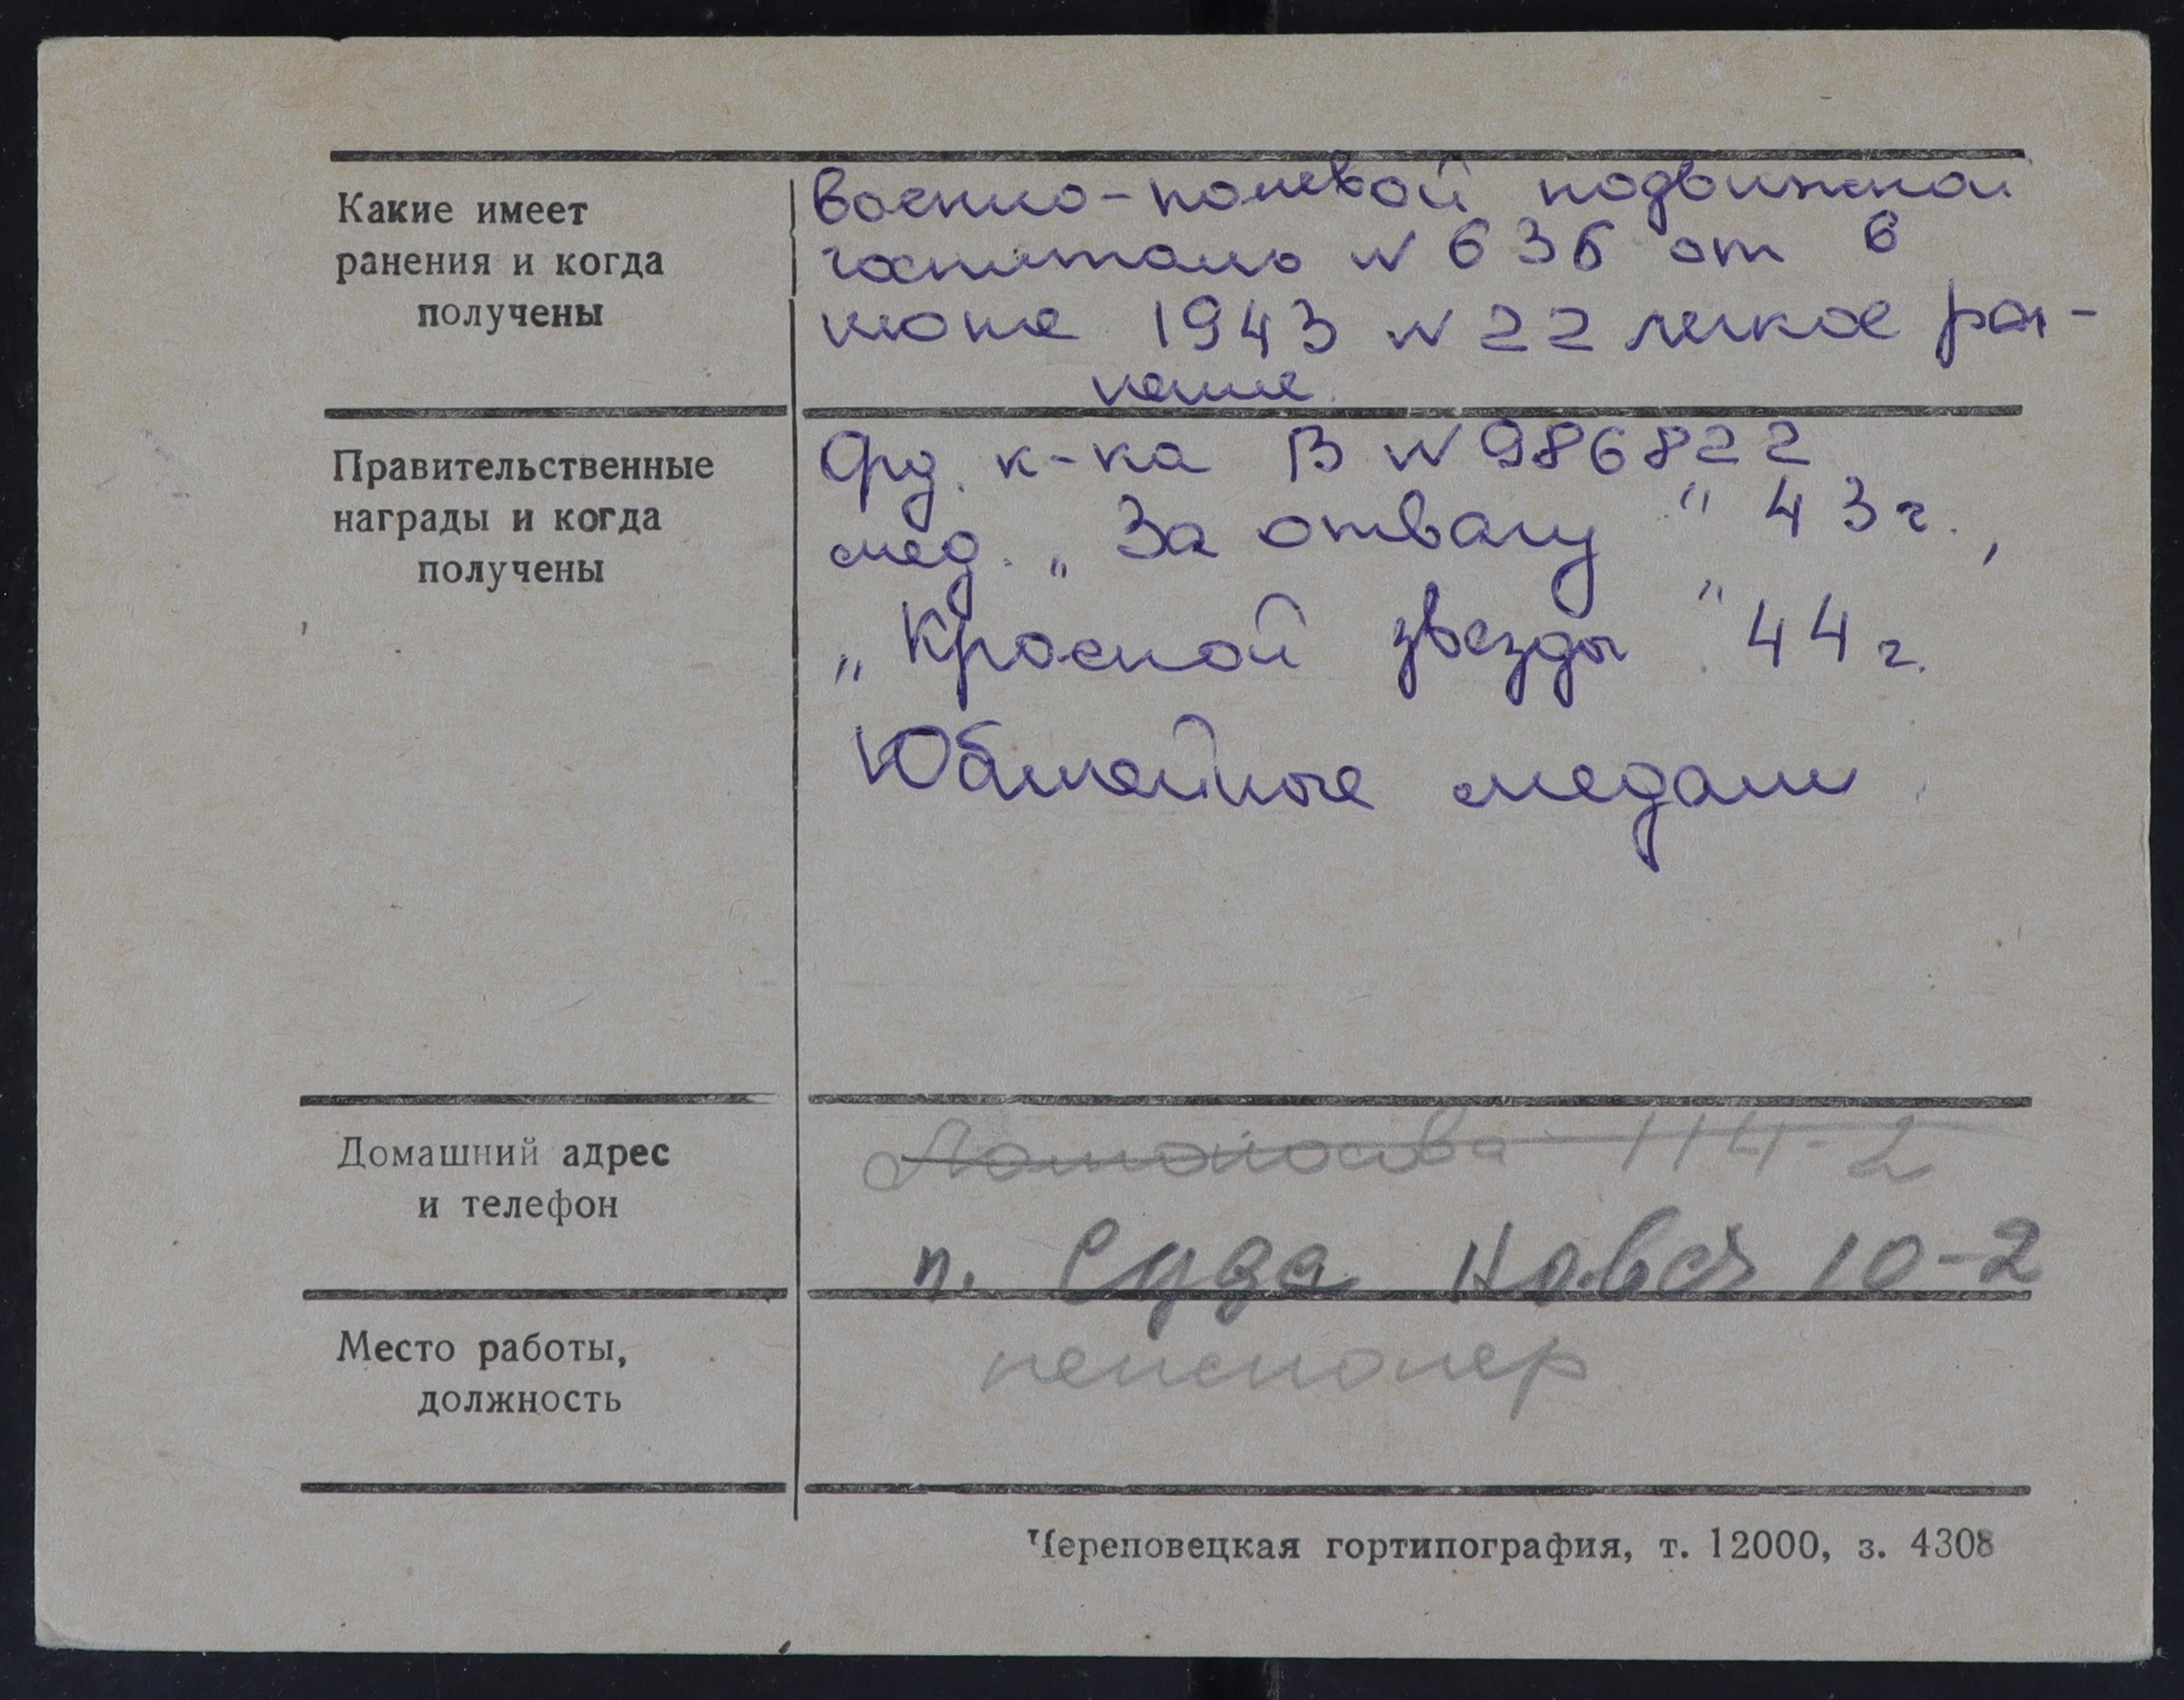 Какие имеет
ранения и когда
получены
военно-полевой подвижной
госпиталь N 636 от 6
июня 1943 N 22 легкое ра-
нение.
Правительственные
награды и когда
получены
Орд. к-ка В N 986822
мед. „За отвагу" 43 г.,
„Красной звезды" 44 г.
Юбилейные медали
Домашний адрес
и телефон
Ломоносова - 114-2
п. Суда 10-2
Место работы,
должность
пенсионер
Череповецкая гортипография, т. 12000, з. 4308